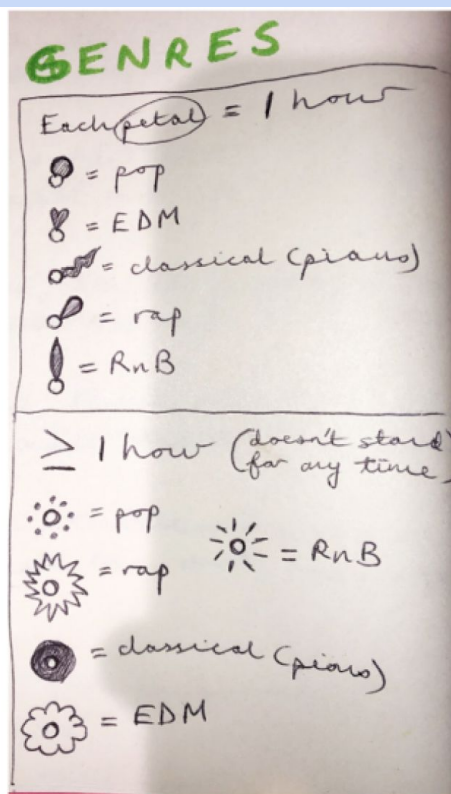 GENRES
Each petal = 1 hour
= pop
= EDM
= classical (piano)
= rap
= RnB
≥ 1 hour (doesn't stand
for any time)
= pop
= RnB
= rap
= classical (piano)
= EDM